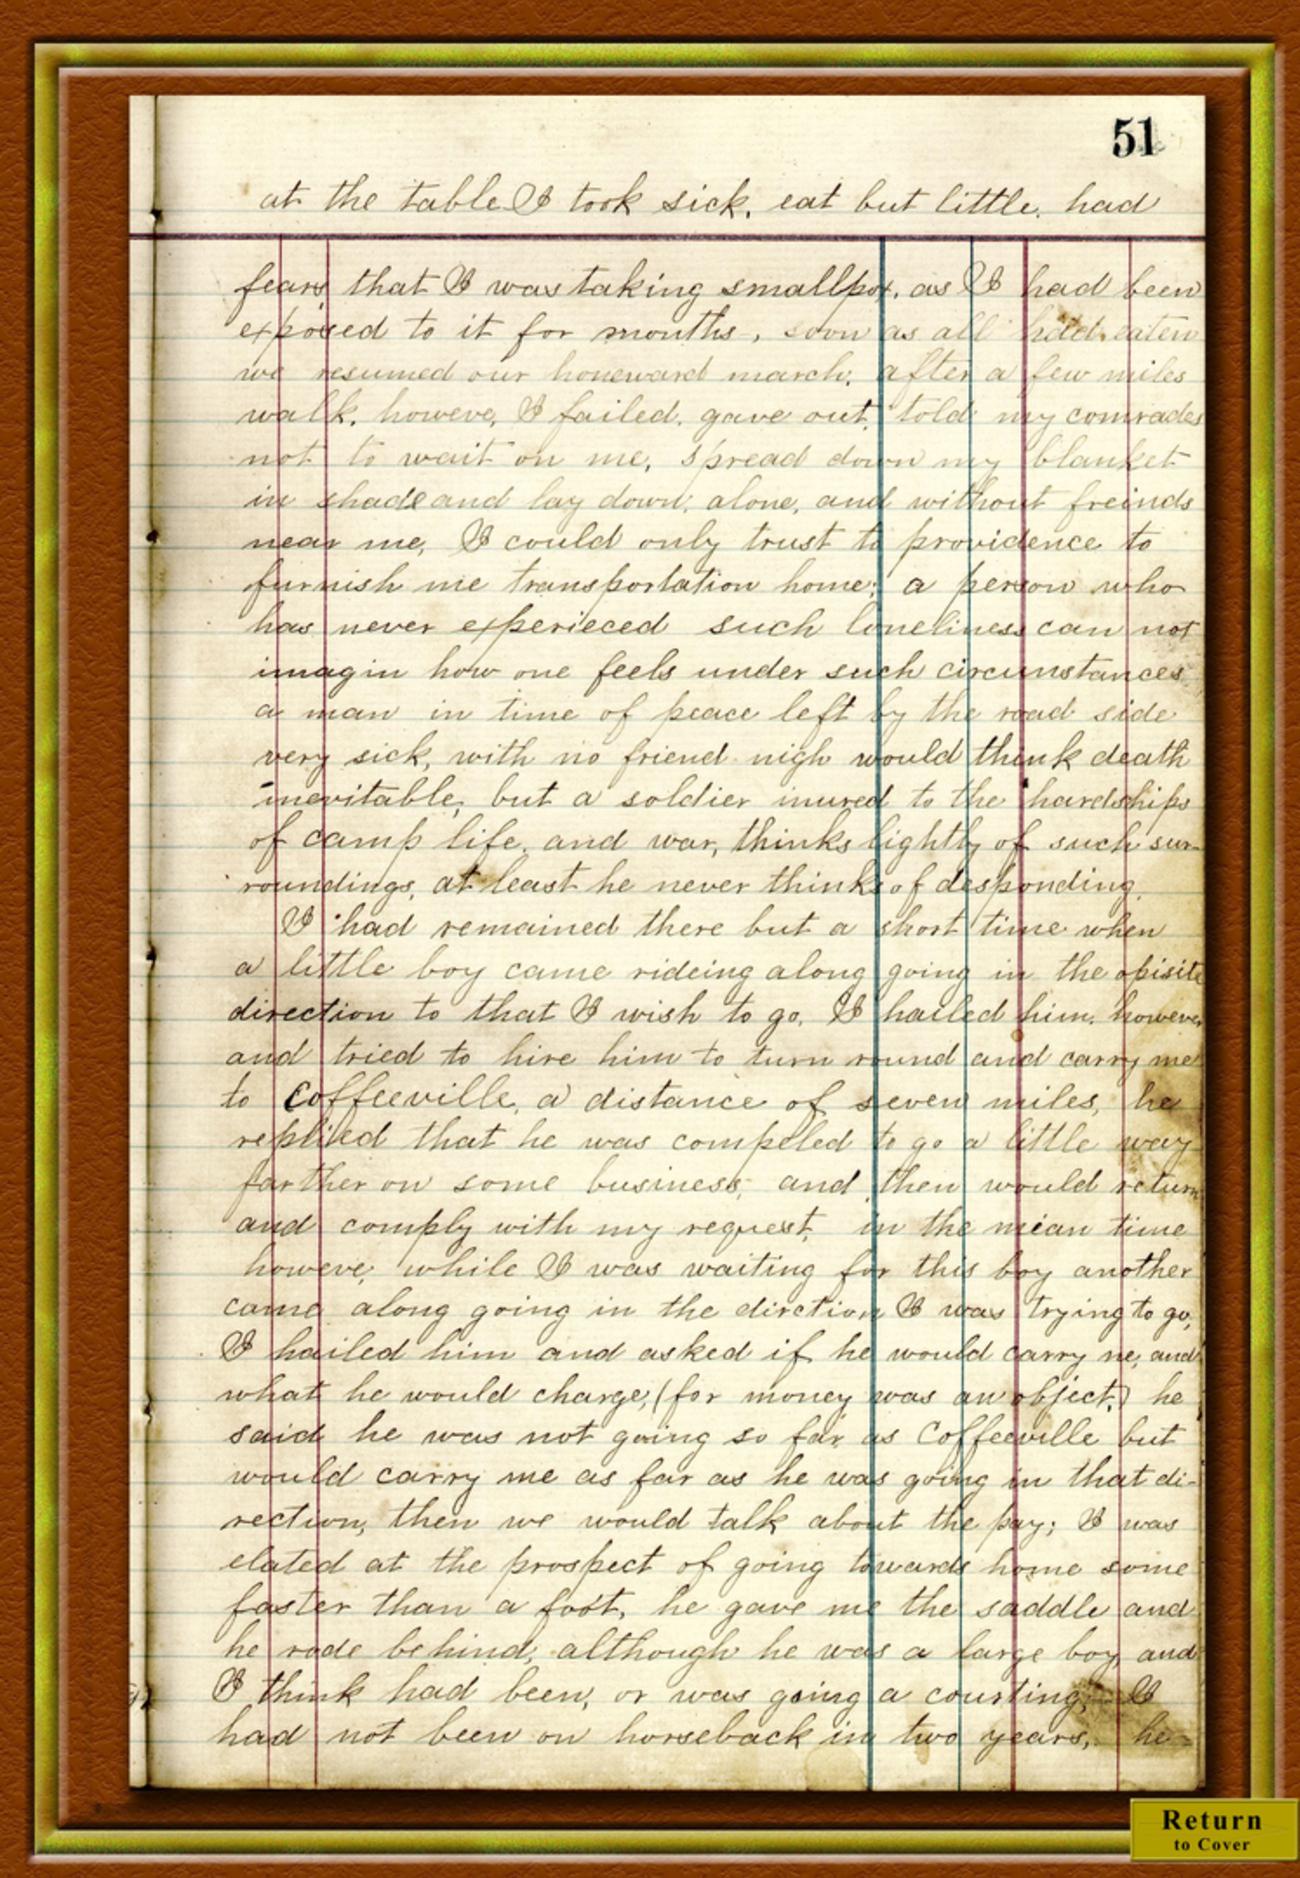 51
at the table I took sick. eat but little. had
fears that I was taking smallpox. as I had been
exposed to it for months, soon as all had eaten
we resumed our homeward march. after a few miles
walk. howeve, I failed. gave out. told my comrades
not to wait on me, spread down my blanket
in shade and lay down, alone, and without freinds
near me, I could only trust to providence to
furnish me transportation home; a person who
has never experieced such loneliness can not
imagin how one feels under such circumstances
a man in time of peace left by the road side
very sick, with no friend nigh would think death
inevitable, but a soldier inured to the hardships
of camp life, and war, thinks lightly of such sur-
roundings, at least he never thinks of desponding.
I had remained there but a short time when
a little boy came rideing along going in the opisite
direction to that I wish to go. I hailed him. however
and tried to hire him to turn round and carry me
to Coffeeville, a distance of seven miles, he
replied that he was compeled to go a little way
farther on some business, and then would return
and comply with my request, in the mean time
howeve, while I was waiting for this boy another
came along going in the dirction I was trying to go,
I hailed him and asked if he would carry me, and
what he would charge, (for money was an object.) he
said he was not going so far as Coffeeville but
would carry me as far as he was going in that di-
rection, then we would talk about the pay; I was
elated at the prospect of going towards home some
faster than a foot, he gave me the saddle and
he rode behind, although he was a large boy, and
I think had been, or was going a courting, I
had not been on horseback in two years, he
Return
to Cover